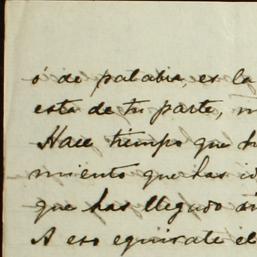 ó de palabra, es la
esta de tu parte,
Hace tiempo que
miento que has
que has llegado
A eso equivale el